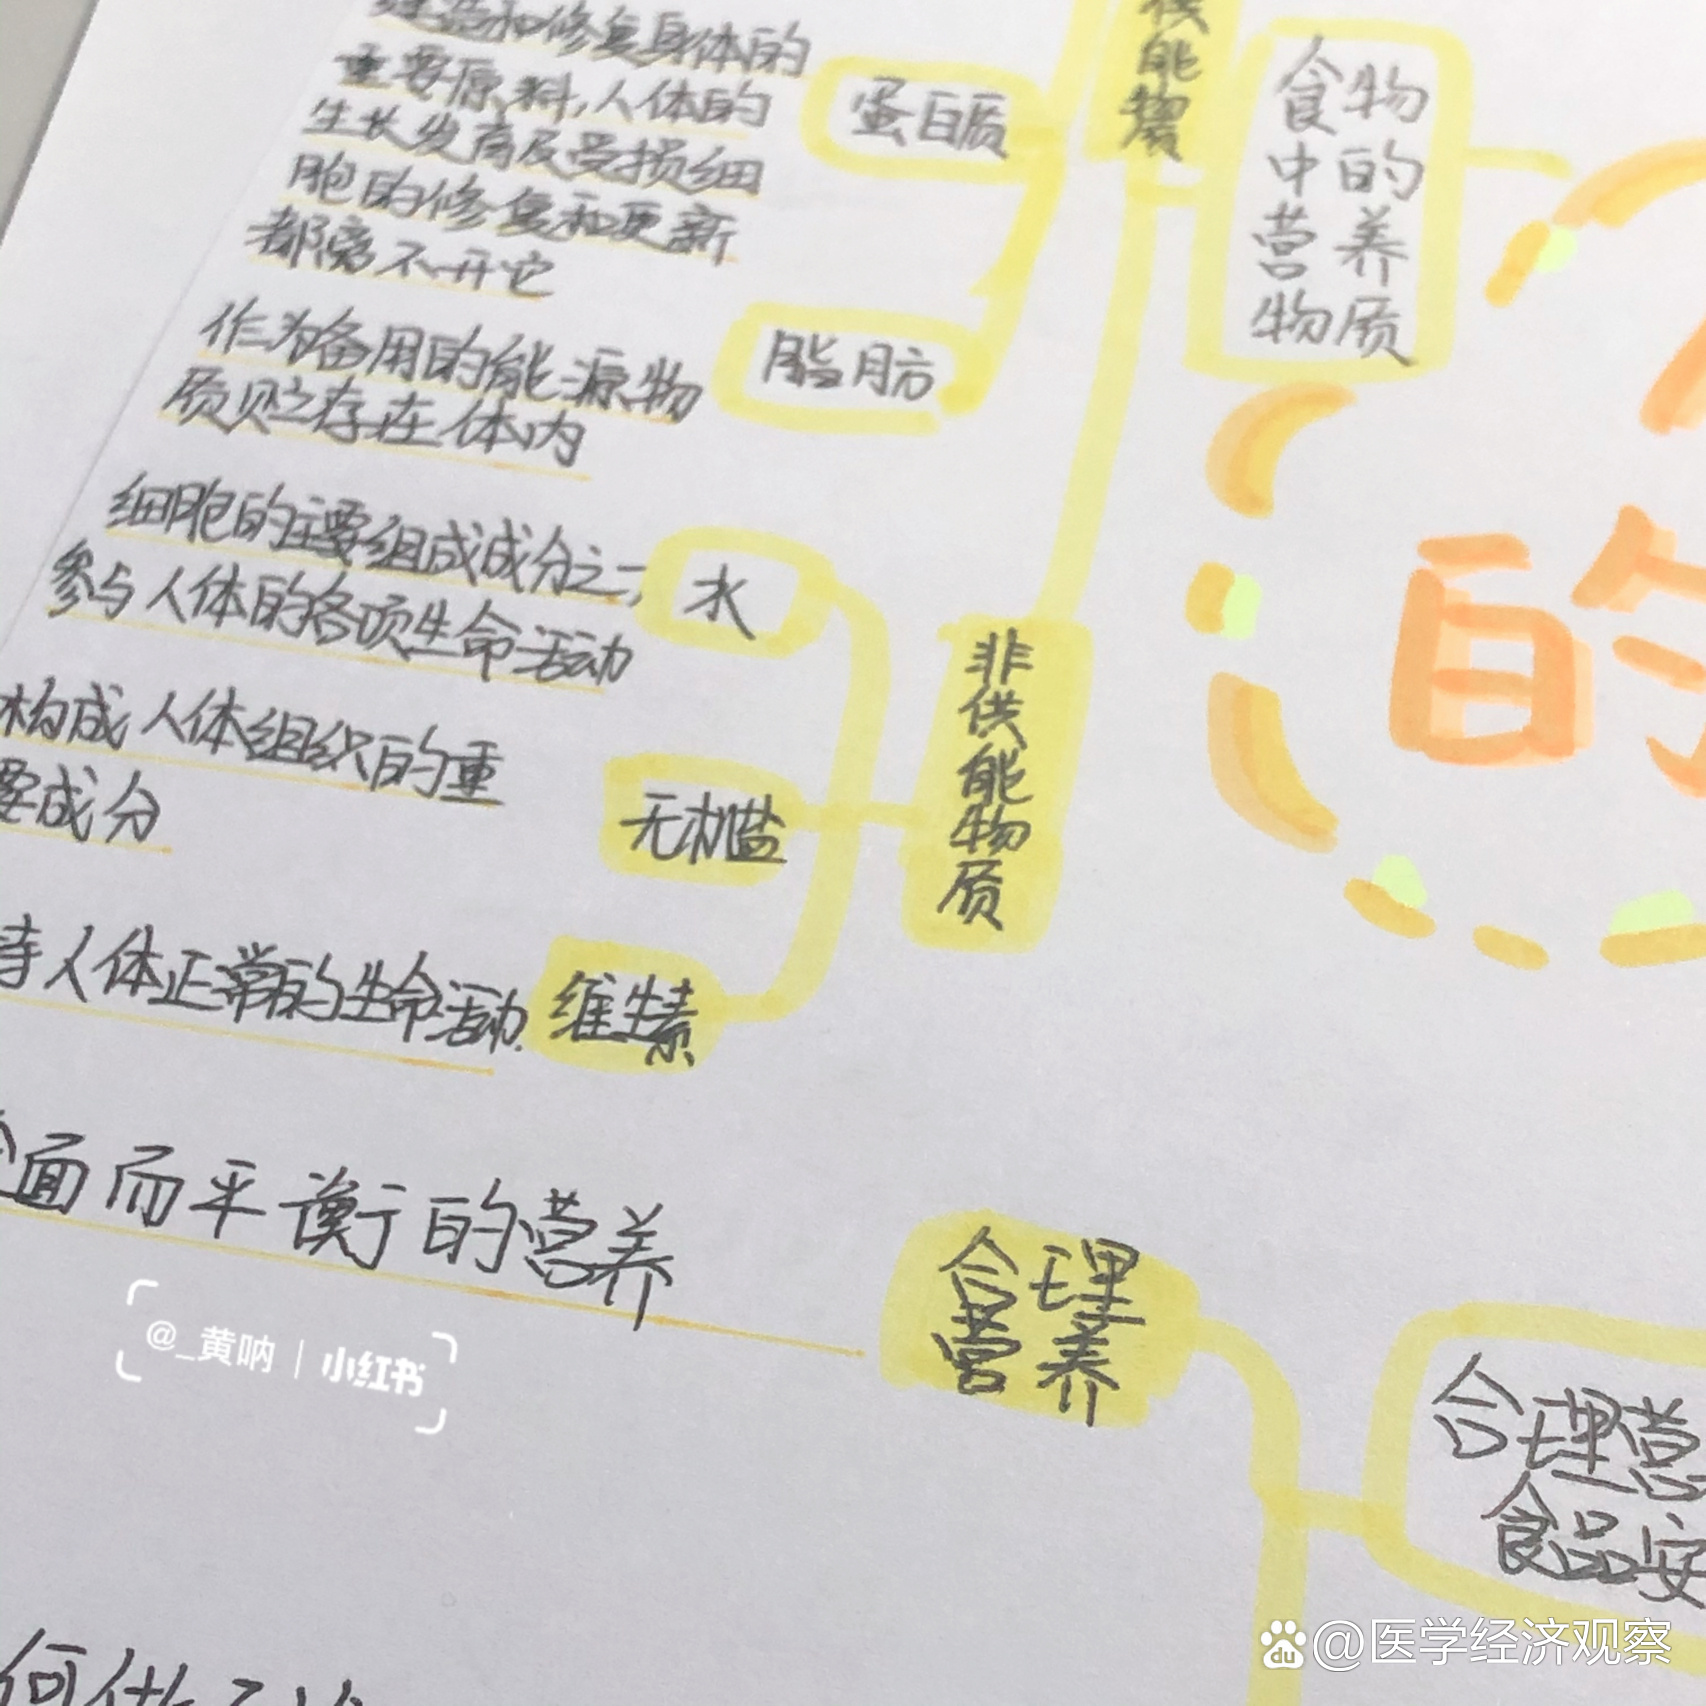 造和修复身体的
重要原料,人体的
生长发育及受损细
胞的修复和更新
都离不开它
蛋白质
供能物质
食物
中的
营养
物质
作为备用的能源物
质贮存在体内
脂肪
细胞的主要组成成分之一,
参与人体的各项生命活动
水
构成人体组织的重
要成分
无机盐
非供能物质
持人体正常的生命活动.
维生素
的
面而平衡的营养
合理
营养
合理营
食品安
@_黄呐 | 小红书
@医学经济观察